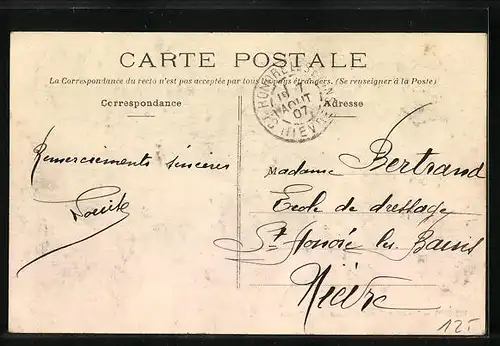 CARTE POSTALE
La Correspondance du recto n'est pas acceptée par tous les pays étrangers. (Se renseigner à la Poste)
Correspondance
Adresse
AOUT
07
Remerciements sincères
Madame Bertrand
Ecole de dressage
St Honoré les Bains
Nièvre